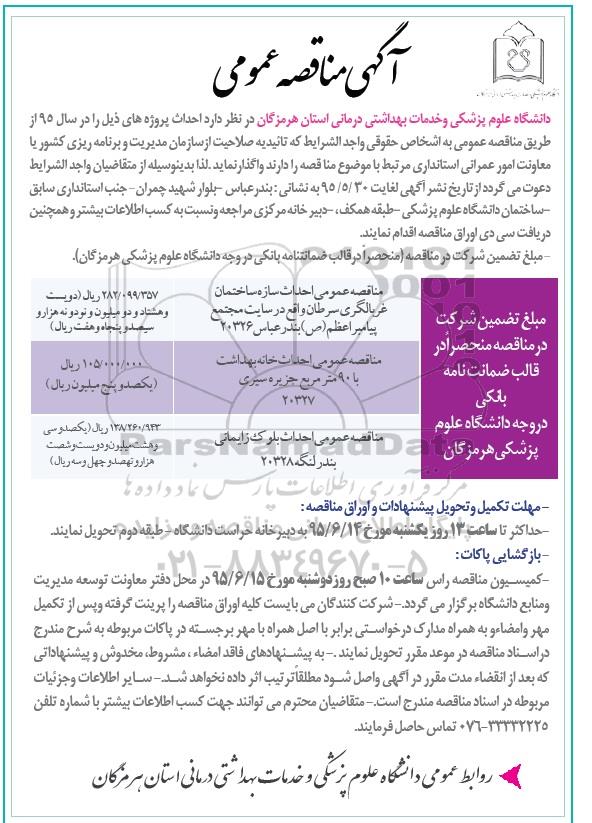 آگهی مناقصه عمومی
دانشگاه علوم پزشکی وخدمات بهداشتی درمانی استان هرمزگان در نظر دارد احداث پروژه های ذیل را در سال ۹۵ از
طریق مناقصه عمومی به اشخاص حقوقی واجد الشرایط که تائیدیه صلاحیت ازسازمان مدیریت و برنامه ریزی کشور یا
معاونت امور عمرانی استانداری مرتبط با موضوع منا قصه را دارند واگذارنماید .لذا بدینوسیله از متقاضیان واجد الشرایط
دعوت می گردد از تاریخ نشر آگهی لغایت ۳۰ /۹۵/۵ به نشانی : بندرعباس -بلوار شهید چمران- جنب استانداری سابق
-ساختمان دانشگاه علوم پزشکی -طبقه همکف، -دبیر خانه مرکزی مراجعه ونسبت به کسب اطلاعات بیشتر و همچنین
دریافت سی دی اوراق مناقصه اقدام نمایند.
- مبلغ تضمین شرکت در مناقصه (منحصراً درقالب ضمانتنامه بانکی در وجه دانشگاه علوم پزشکی هرمزگان).
مبلغ تضمین شرکت
درمناقصه منحصراًدر
قالب ضمانت نامه
بانکی
دروجه دانشگاه علوم
پزشکی هرمزگان
مناقصه عمومی احداث سازه ساختمان
غربالگری سرطان واقع در سایت مجتمع
پیامبراعظم(ص)بندرعباس۲۰۳۲۶
۲۸۲/۰۹۹/۳۵۷ ریال (دویست
وهشتاد و دو میلیون و نود و نه هزار و
سیصد و پنجاه و هفت ریال)
مناقصه عمومی احداث خانه بهداشت
با ۹۰ متر مربع جزیره سیری
۲۰۳۲۷
۱۰۵/۰۰۰/۰۰۰ ریال
(یکصد و پنج میلیون ریال)
مناقصه عمومی احداث بلوک زایمانی
بندرلنگه ۲۰۳۲۸
۱۳۸/۲۶۰/۹۴۳ ریال (یکصد و سی
و هشت میلیون و دویست و شصت
هزار و نهصد و چهل و سه ریال)
ParsNamadData
مرکز فرآوری اطلاعات پارس نماد داده ها
- مهلت تکمیل وتحویل پیشنهادات و اوراق مناقصه :
-حداکثر تا ساعت ۱۳ روز یکشنبه مورخ ۹۵/۶/۱۴ به دبیرخانه حراست دانشگاه - طبقه دوم تحویل نمایند.
- بازگشایی پاکات :
۰۲۱-۸۸۳۴۹۶۷۰-۵
-کمیسیون مناقصه راس ساعت ۱۰ صبح روز دوشنبه مورخ ۹۵/۶/۱۵ در محل دفتر معاونت توسعه مدیریت
ومنابع دانشگاه برگزار می گردد.- شرکت کنندگان می بایست کلیه اوراق مناقصه را پرینت گرفته وپس از تکمیل
مهر وامضاءو به همراه مدارک درخواستی برابر با اصل همراه با مهر برجسته در پاکات مربوطه به شرح مندرج
دراسناد مناقصه در موعد مقرر تحویل نمایند .- به پیشنهادهای فاقد امضاء ، مشروط، مخدوش و پیشنهاداتی
که بعد از انقضاء مدت مقرر در آگهی واصل شود مطلقاًترتیب اثر داده نخواهد شد.- سایر اطلاعات وجزئیات
مربوطه در اسناد مناقصه مندرج است.- متقاضیان محترم می توانند جهت کسب اطلاعات بیشتر با شماره تلفن
۰۷۶-۳۳۳۳۲۲۲۵ تماس حاصل فرمایند.
روابط عمومی دانشگاه علوم پزشکی و خدمات بهداشتی درمانی استان هرمزگان